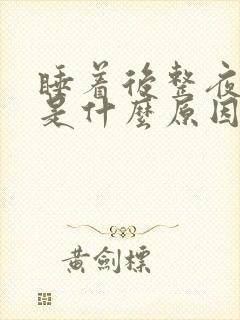 睡着後整夜
是什麼原因
黃劍標